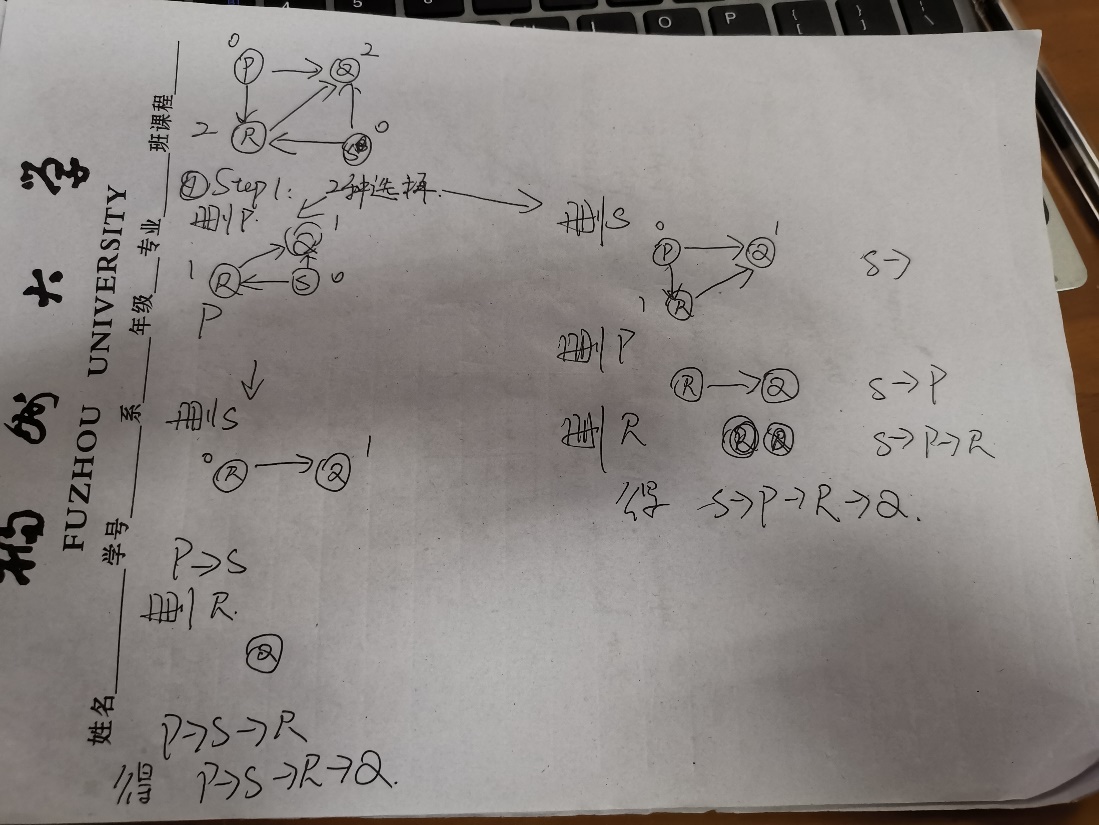 福州大学
FUZHOU UNIVERSITY
姓名 学号 系 年级 专业 班课程
0 P Q 2
2 R S 0
① Step1: 2种选择
删P.
Q 1
1 R S 0
P
删S
0 R Q 1
P→S
删R.
Q
P→S→R
得 P→S→R→Q.
删S
0 P Q 1
1 R
S→
删P
R Q S→P
删R
S→P→R
得 S→P→R→Q.
O P